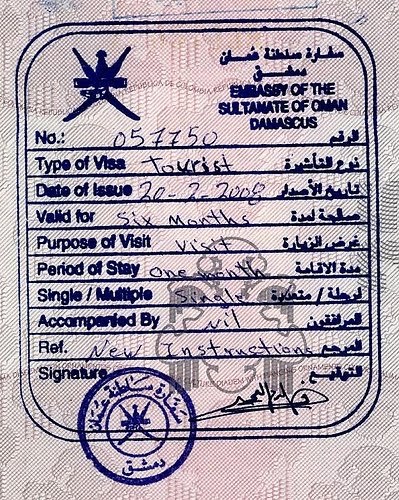 سفارة سلطنة عُمان
دمشق
EMBASSY OF THE
SULTANATE OF OMAN
DAMASCUS
No.: 057750 الرقم
Type of Visa Tourist نوع التأشيرة
Date of Issue 20-2-2008 تاريخ الأصدار
Valid for Six months صالحة لمدة
Purpose of Visit Visit غرض الزيارة
Period of Stay One month مدة الاقامة
Single / Multiple Single لرحلة / متعددة
Accompanied By nil المرافقون
Ref. New Instructions المرجع
Signature التوقيع
سفارة سلطنة عمان
دمشق